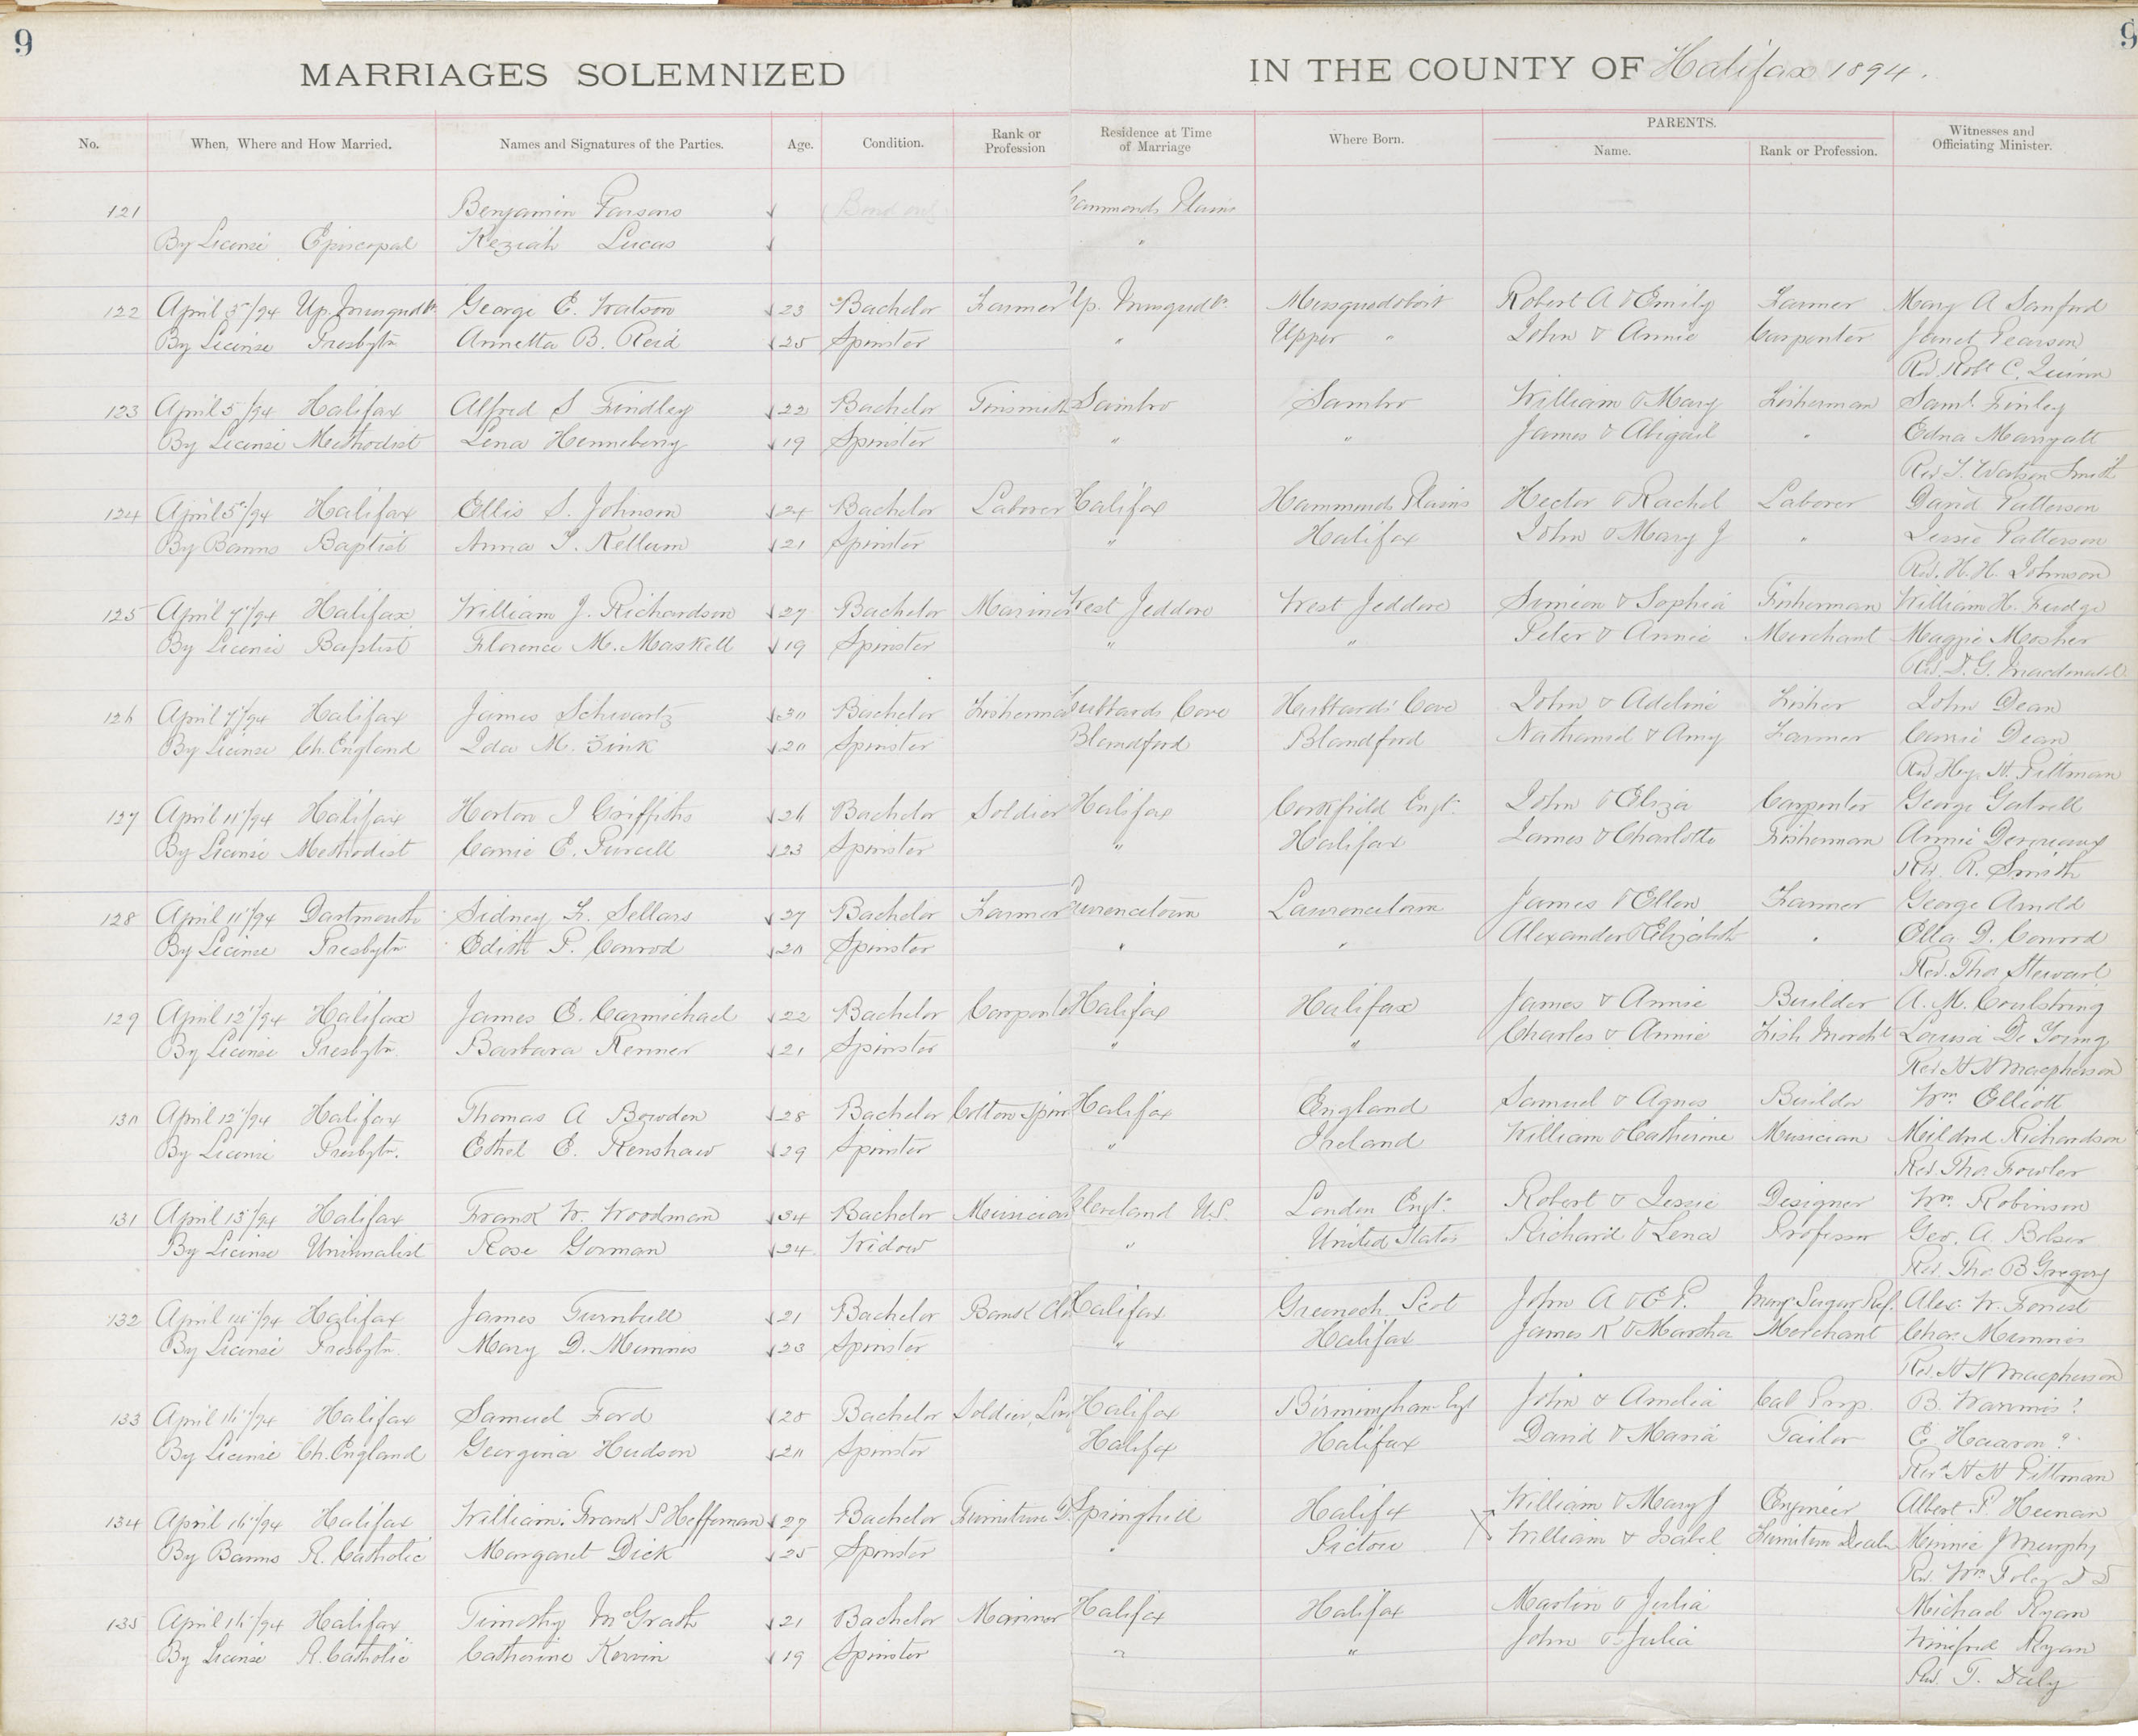 9
9
MARRIAGES SOLEMNIZED IN THE COUNTY OF Halifax 1894.
No. When, Where and How Married. Names and Signatures of the Parties. Age. Condition. Rank or Profession Residence at Time of Marriage Where Born. PARENTS. Name. Rank or Profession. Witnesses and Officiating Minister.
121 Benjamin Parsons Hammonds Plains
By License Episcopal Keziah Lucas "
122 April 5"/94 Up. Musqudbt George E. Watson 23 Bachelor Farmer Up. Musqudbt. Musquodoboit Robert A & Emily Farmer Mary A Sanford
By License Presbytn Annetta B. Reid 25 Spinster " Upper " John & Annie Carpenter Janet Pearson
Rev. Robt C. Quinn
123 April 5/94 Halifax Alfred S Findley 22 Bachelor Tinsmith Sambro Sambro William & Mary Fisherman Saml. Finley
By License Methodist Lena Henneberry 19 Spinster " " James & Abigail " Edna Marryatt
Rev. T. Watson Smith
124 April 5"/94 Halifax Ellis S. Johnson 24 Bachelor Laborer Halifax Hammonds Plains Hector & Rachel Laborer David Patterson
By Banns Baptist Anna T. Kellum 21 Spinster " Halifax John & Mary J " Jessie Patterson
Rev. H. H. Johnson
125 April 7"/94 Halifax William J. Richardson 27 Bachelor Mariner West Jeddore West Jeddore Simeon & Sophia Fisherman William H. Fudge
By License Baptist Florence M. Maskell 19 Spinster " " Peter & Annie Merchant Maggie Mosher
Rev. D. G. Macdonald
126 April 7"/94 Halifax James Schwartz 30 Bachelor Fisherman Hubbards Cove Hubbards Cove John & Adeline Fisher John Dean
By License Ch. England Ida M. Zink 20 Spinster Blandford Blandford Nathaniel & Amy Farmer Carrie Dean
Rev Hy. H. Pittman
127 April 11"/94 Halifax Horton J Griffiths 26 Bachelor Soldier Halifax Engt. John & Eliza Carpenter George Gatrell
By License Methodist Carrie E. Purcell 23 Spinster " Halifax James & Charlotte Fisherman Annie
Rev. R. Smith
128 April 11"/94 Dartmouth Sidney F. Sellars 27 Bachelor Farmer Lawrencetown Lawrencetown James & Ellen Farmer George Arnold
By License Presbytn Edith P. Conrod 20 Spinster " " Alexander & Elizabeth " Ella D. Conrod
Rev. Thos Stewart
129 April 12"/94 Halifax James E. Carmichael 22 Bachelor Carpenter Halifax Halifax James & Annie Builder A. M. Coulstring
By License Presbytn. Barbara Renner 21 Spinster " " Charles & Annie Fish Mercht Louisa De Young
Rev. H H Macpherson
130 April 12"/94 Halifax Thomas A Bowden 28 Bachelor Cotton Spin Halifax England Samuel & Agnes Builder Wm. Elliott
By License Presbytn. Ethel E. Renshaw 29 Spinster " Ireland William & Catherine Musician Mildred Richardson
Rev. Thos. Fowler
131 April 13"/94 Halifax Frank W. Woodman 34 Bachelor Musician Cleveland U.S. London Engt. Robert & Jessie Designer Wm. Robinson
By License Universalist Rose Gorman 24 Widow " United States Richard & Lena Professor Geo. A. Bolser
Rev. Thos B Gregory
132 April 14"/94 Halifax James Turnbull 21 Bachelor Bank Halifax Greenock Scot John A & E P. Mangr Sugar Ref. Alex. W. Forrest
By License Presbytn. Mary D. Munnis 23 Spinster " Halifax James K & Martha Merchant Chas. Munnis
Rev. H H Macpherson
133 April 16"/94 Halifax Samuel Ford 25 Bachelor Soldier Halifax Birmingham Engt John & Amelia Cab Prop. B. Wannis?
By License Ch. England Georgina Hudson 20 Spinster Halifax Halifax David & Maria Tailor E. Haaron?
Rev. H H Pittman
134 April 16"/94 Halifax William. Frank S Heffernan 27 Bachelor Furniture D. Springhill Halifax William & Mary J Engineer Albert P Heenan
By Banns R. Catholic Margaret Dick 25 Spinster " Pictou William & Isabel Furniture Dealer Minnie J Murphy
Rev. Wm Foley D D
135 April 16"/94 Halifax Timothy McGrath 21 Bachelor Mariner Halifax Halifax Martin & Julia Michael Ryan
By License R. Catholic Catherine Kervin 19 Spinster " " John & Julia Winifred Ryan
Rev. T. Daly